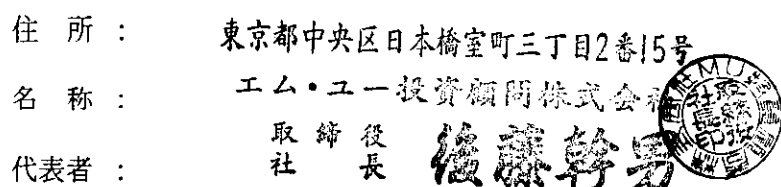 住 所 : 東京都中央区日本橋室町三丁目2番15号
名 称 : エム・ユー投資顧問株式会社
取 締 役
代表者 : 社 長 後藤幹男